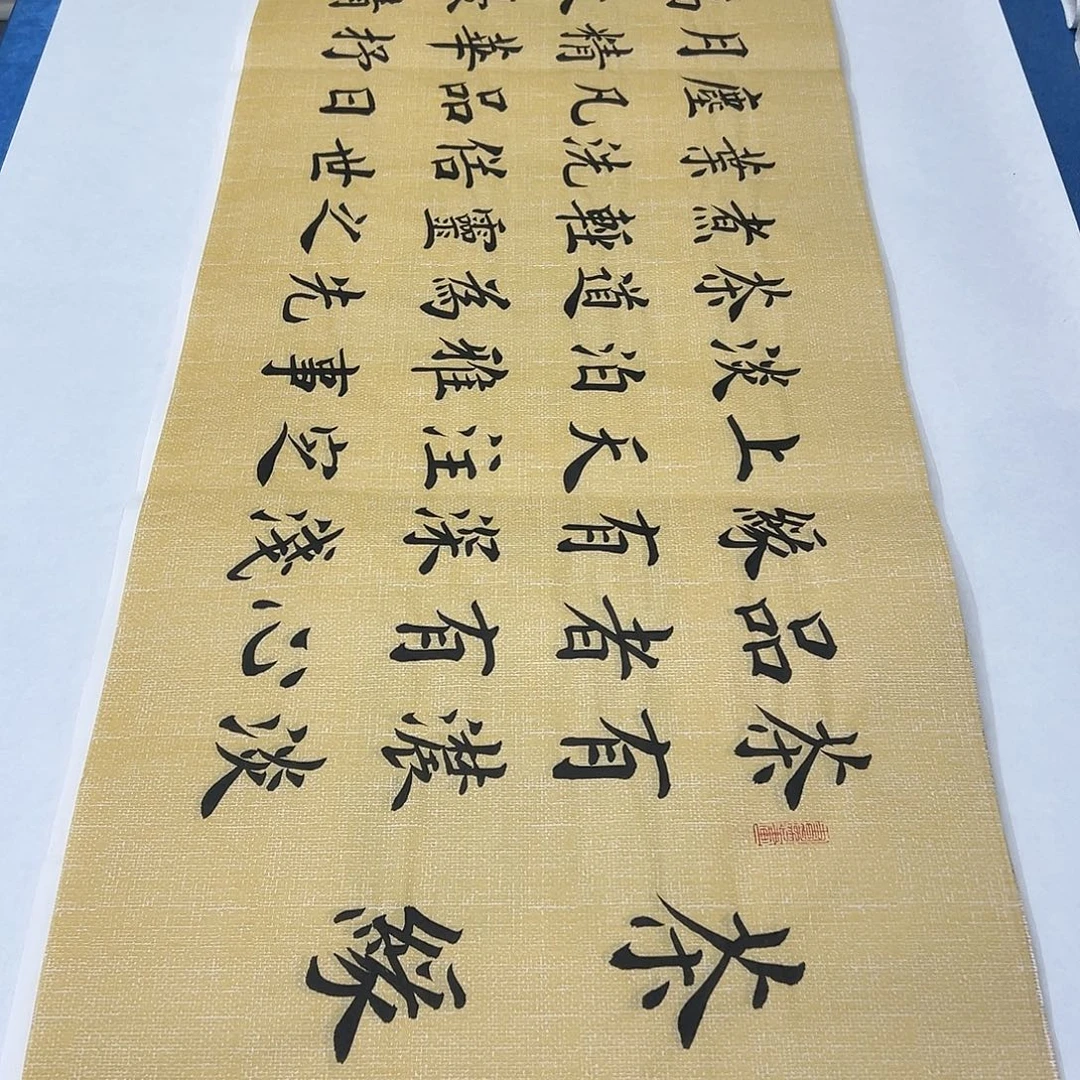 茶緣
茶有濃淡
品者有心
緣有深淺
上天注定
淡泊雅事
茶道為先
煮輕靈之
葉洗俗世
塵凡品日
月精華抒